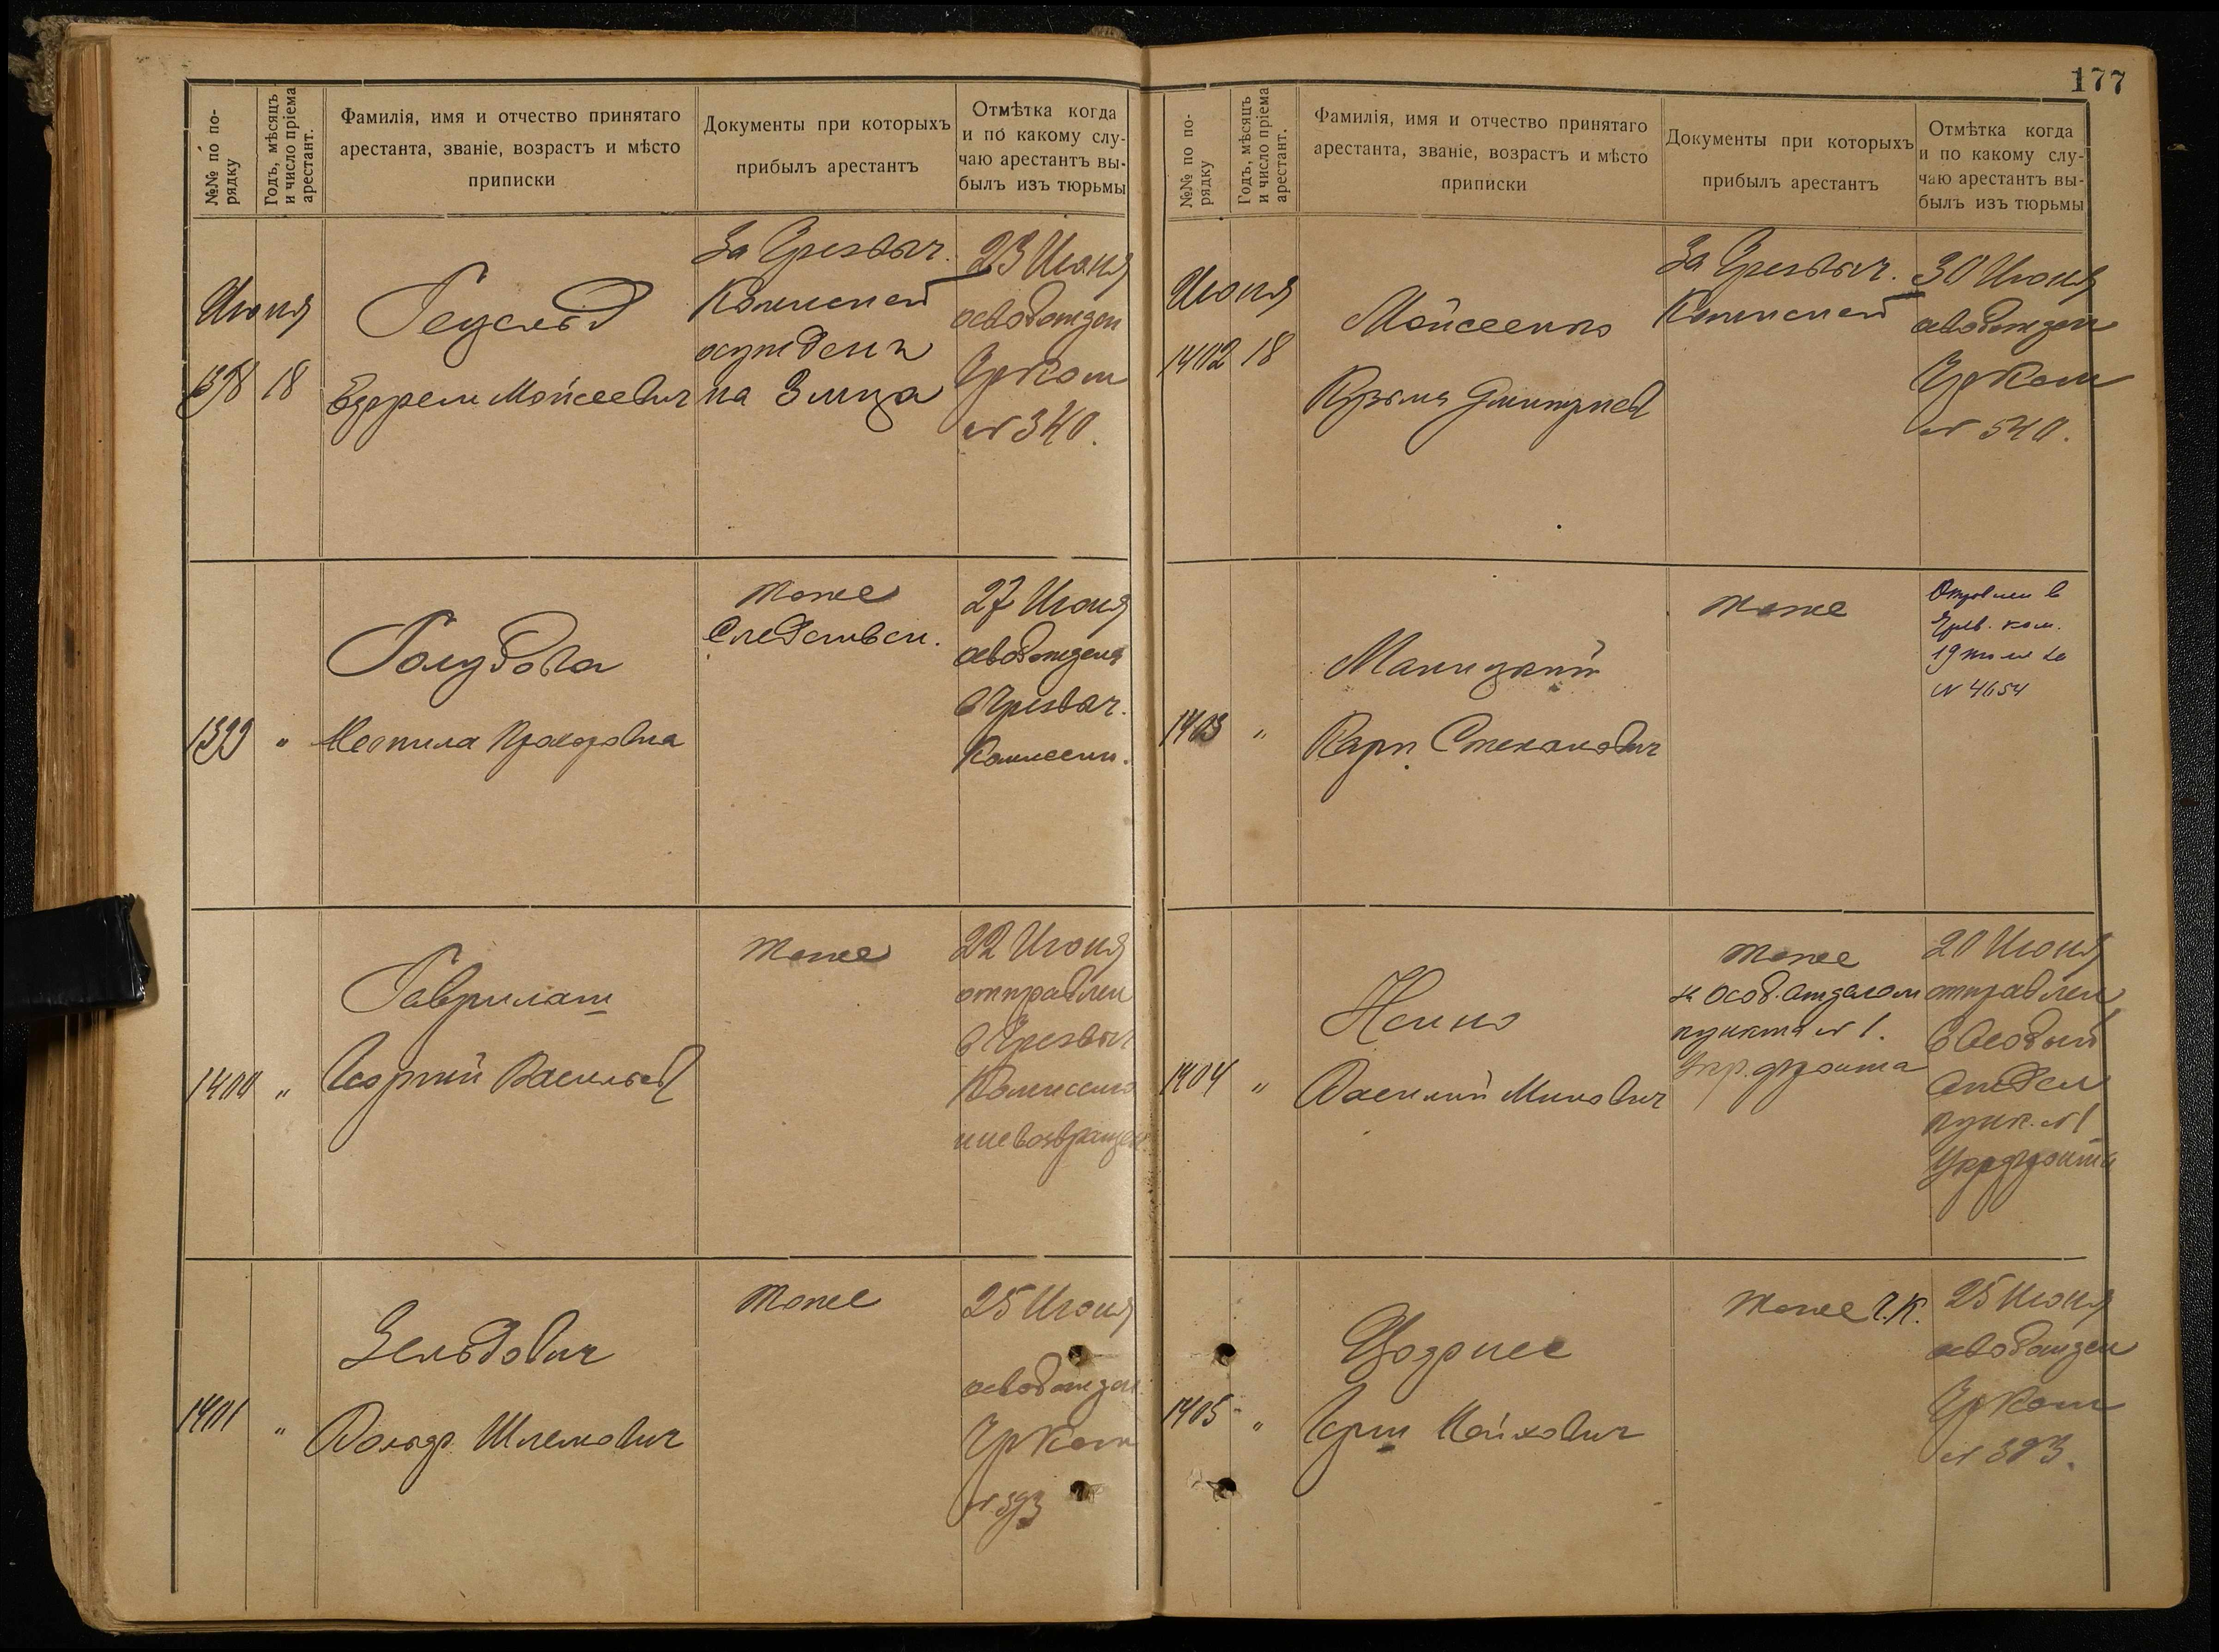 177
№№ по по-
рядку
Годъ, мѣсяцъ
и число пріема
арестант.
Фамилія, имя и отчество принятаго
арестанта, званіе, возрастъ и мѣсто
приписки
Документы при которыхъ
прибылъ арестантъ
Отмѣтка когда
и по какому слу-
чаю арестантъ вы-
былъ изъ тюрьмы
Июня
1398 18
Ефрем Мойсеевич
За Чрезвыч.
Комиссией
осужден
на 3 м-ца
23 Июня
освобожден
ЧрКом
№ 340.
1399 "
Голубова
Прохоровна
тоже
Следствен.
27 Июня
освобождена
в Чрезвыч.
Комиссии.
1400 "
Гаврилаш
Георгий Васильев
тоже
22 Июня
отправлен
в Чрезвыч
Комиссию
и не возвращен
1401 "
Зельдович
Вольф Шлемович
тоже
25 Июня
освобожден
ЧрКом
№ 393
№№ по по-
рядку
Годъ, мѣсяцъ
и число пріема
арестант.
Фамилія, имя и отчество принятаго
арестанта, званіе, возрастъ и мѣсто
приписки
Документы при которыхъ
прибылъ арестантъ
Отмѣтка когда
и по какому слу-
чаю арестантъ вы-
былъ изъ тюрьмы
Июня
1402 18
Мойсеенко
Кузьма Дмитриев
За Чрезвыч.
Комиссией
30 Июня
освобожден
ЧрКом
№ 540.
1403 "
Маницкий
Карп Степанович
тоже
Отправлен в
Чрезв. ком.
19 июня за
№ 4654
1404 "
Ненно
Василий Минович
тоже
за Особ. отделом
пункта № 1.
Укр. фронта
20 Июня
отправлен
в Особый
Отдел
пунк. № 1
Укрфронта
1405 "
Герш
тоже Ч.К.
25 Июня
освобожден
ЧрКом
№ 393.